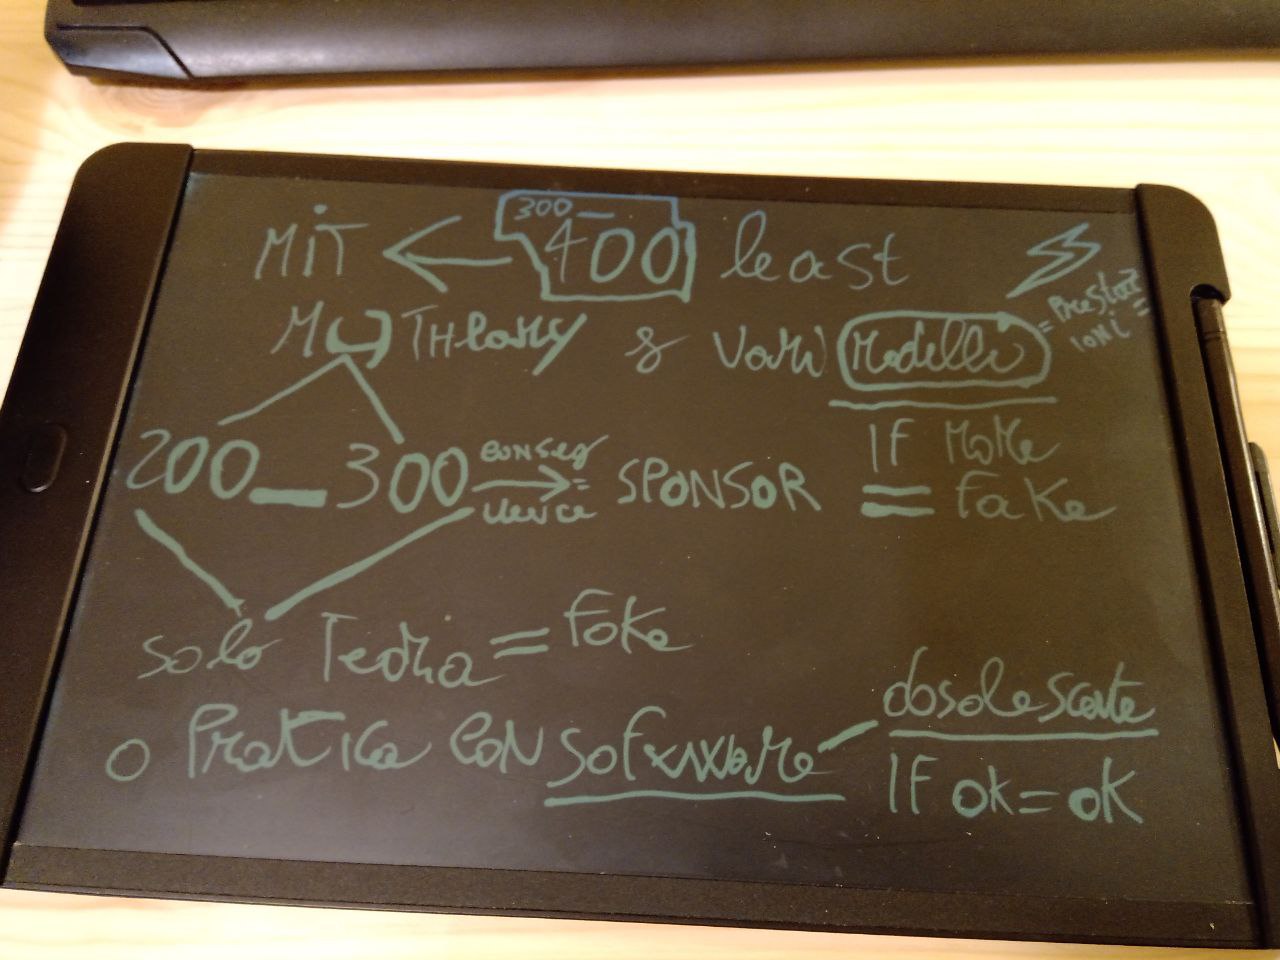 300 –
MIT ← 400 least
THEORY & vari Modelli = Prestaz
ioni =
200 – 300 conseg
uence → = SPONSOR
IF More
= fake
solo Teoria = Fake
o Pratica con software – obsolescente
IF OK = OK